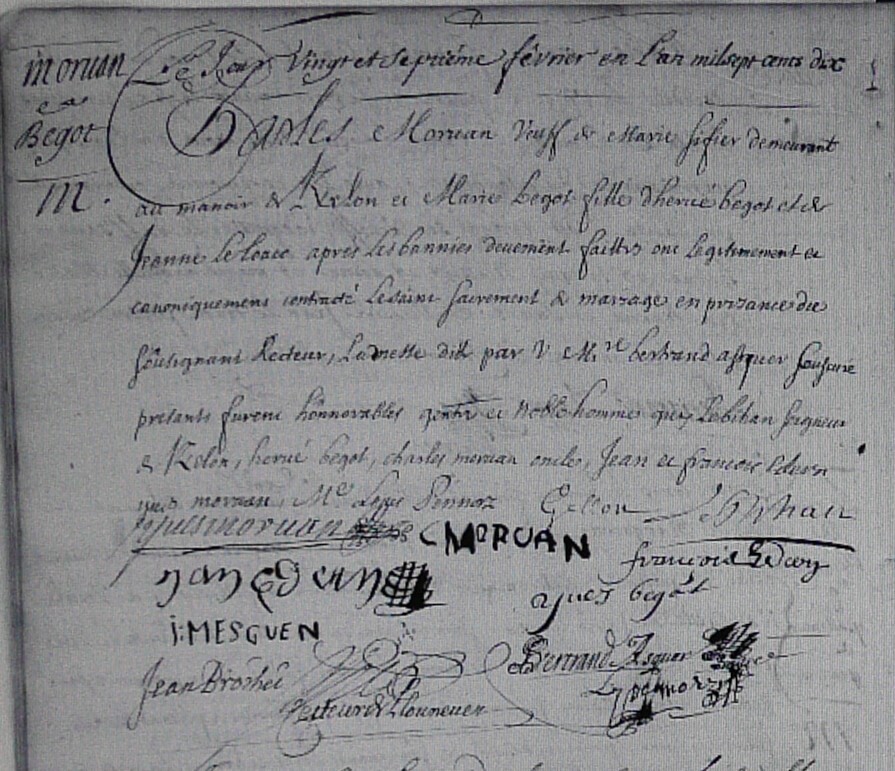 moruan
Begot
M.
Le Jour Vingt et Septiéme février en L'an mil sept cents dix
Charles Moruan Veuff de Marie demeurant
au manoir de Kelon et Marie begot fille d'hervé begot et de
Jeanne le loaec apres les bannies deuement faittes ont legitimement et
canoniquement contracté le saint sacrement de mariage en prezance du
soussignant Recteur, La messe ditt par V M.re bertrand asquer soussigné
presants furent honnorables gents et noble homme yves Lebihan seigneur
de Kelon, hervé begot, charles moruan oncles, Jean et francois
yves moruan, Me Pennorz Gellon Le Bihan
yues moruan C MORUAN
francois
yues begot
j: MESGUEN
Bertrand Asquer
Jean Broshec
Recteur de Plouneuen